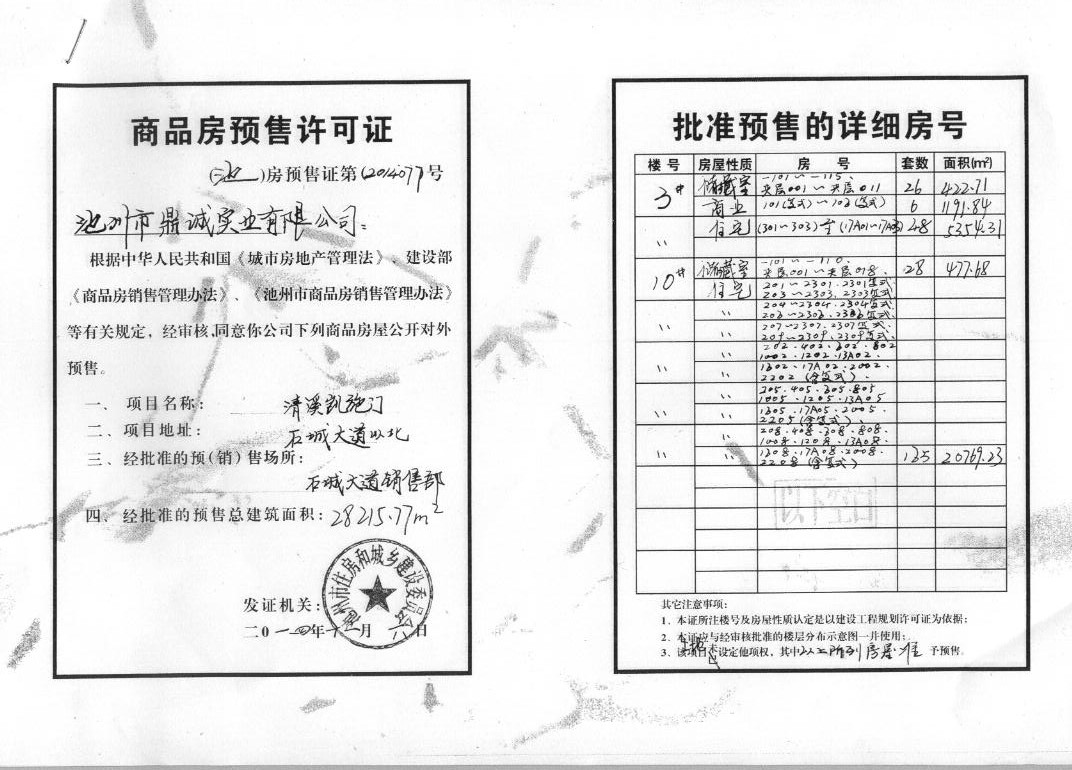 商品房预售许可证
(池)房预售证第(2014077号
池州市鼎诚实业有限公司:
根据中华人民共和国《城市房地产管理法》、建设部
《商品房销售管理办法》、《池州市商品房销售管理办法》
等有关规定,经审核,同意你公司下列商品房屋公开对外
预售。
一、 项目名称: 清溪凯旋门
二、项目地址: 石城大道以北
三、经批准的预(销)售场所:
石城大道销售部
四、经批准的预售总建筑面积: 28215.77m²
池州市住房和城乡建设委员会
发证机关:
二0一四年十二月 八日
批准预售的详细房号
楼号 房屋性质 房 号 套数 面积(㎡)
3# 储藏室 -101~-115、
夹层001~夹层011 26 422.71
商业 101(复式)~103(复式) 6 1191.84
〃 住宅 (301~303)至(17A01~17A03) 48 5354.31
10# 储藏室 -101~-110、
夹层001~夹层018、 28 477.68
住宅 201~2301、2301复式
203~2303、2303复式
〃 204~2304、2304复式
206~2306、2306复式
〃 〃 207~2307、2307复式、
209~2309、2309复式、
〃 202、402、602、802
1002、1202、13A02、
〃 〃 1302、17A02、2002、
2202(含复式)、
〃 205、405、605、805
1005、1205、13A05
〃 〃 1305、17A05、2005、
2205(含复式)、
〃 208、408、608、808、
1008、1208、13A08、
〃 〃 1308、17A08、2008、
2208(含复式) 135 20769.23
以下空白
其它注意事项:
1、本证所注楼号及房屋性质认定是以建设工程规划许可证为依据;
2、本证应与经审核批准的楼层分布示意图一并使用;
3、该项目 设定他项权,其中以上所列房屋准予预售。